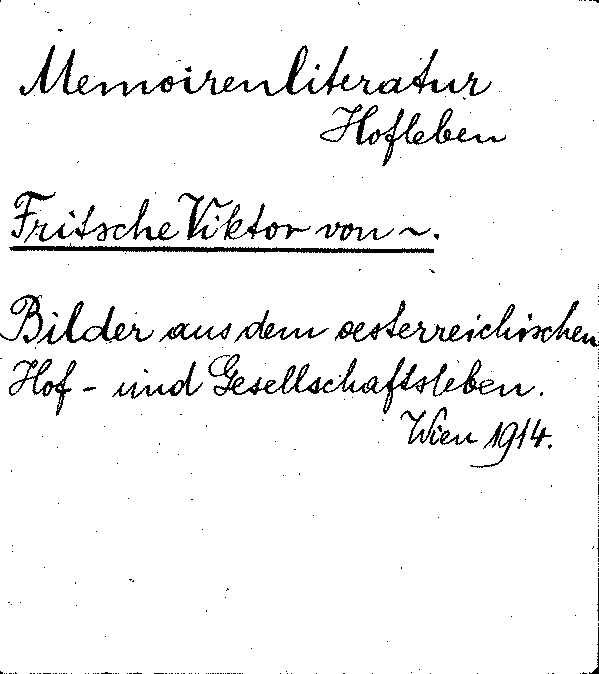 Memoirenliteratur
Hofleben
Fritsche Viktor von ~.
Bilder aus dem oesterreichischen
Hof - und Gesellschaftsleben.
Wien 1914.